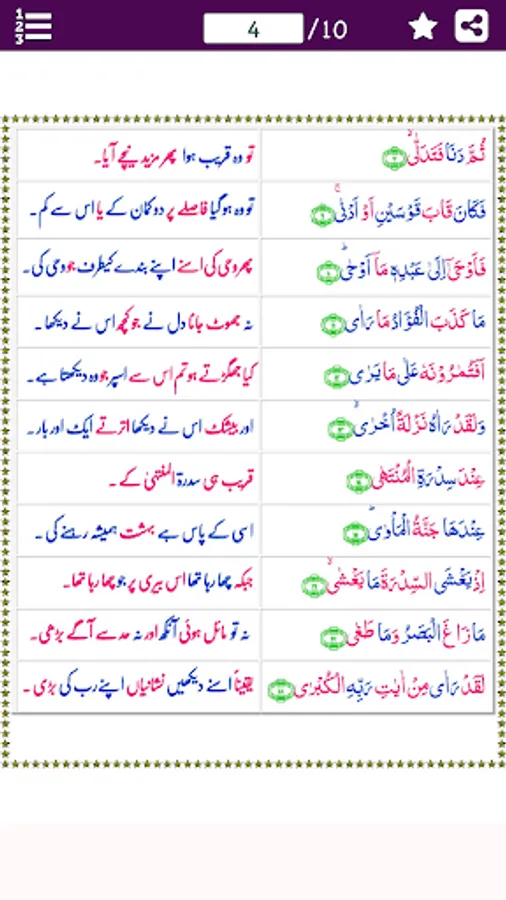 1
2
3
4 /10
ثُمَّ دَنَا فَتَدَلّٰیۙ تو وہ قریب ہوا پھر مزید نیچے آیا۔
فَكَانَ قَابَ قَوْسَیْنِ اَوْ اَدْنٰیۚ تو وہ ہوگیا فاصلے پر دو کمان کے یا اس سے کم۔
فَاَوْحٰۤی اِلٰی عَبْدِهٖ مَاۤ اَوْحٰیؕ پھر وحی کی اسنے اپنے بندے کیطرف جو وحی کی۔
مَا كَذَبَ الْفُؤَادُ مَا رَاٰی نہ جھوٹ جانا دل نے جو کچھ اس نے دیکھا۔
اَفَتُمٰرُوْنَهٗ عَلٰی مَا یَرٰی کیا جھگڑتے ہو تم اس سے اسپر جو وہ دیکھتا ہے۔
وَلَقَدْ رَاٰهُ نَزْلَةً اُخْرٰیۙ اور بیشک اس نے دیکھا اترتے ایک اور بار۔
عِنْدَ سِدْرَةِ الْمُنْتَهٰی قریب ہی سدرۃ المنتہیٰ کے۔
عِنْدَهَا جَنَّةُ الْمَاْوٰیؕ اسی کے پاس ہے بہشت ہمیشہ رہنے کی۔
اِذْ یَغْشَی السِّدْرَةَ مَا یَغْشٰیۙ جبکہ چھا رہا تھا اس بیری پر جو چھا رہا تھا۔
مَا زَاغَ الْبَصَرُ وَمَا طَغٰی نہ تو مائل ہوئی آنکھ اور نہ حد سے آگے بڑھی۔
لَقَدْ رَاٰی مِنْ اٰیٰتِ رَبِّهِ الْكُبْرٰی یقیناً اسنے دیکھیں نشانیاں اپنے رب کی بڑی۔